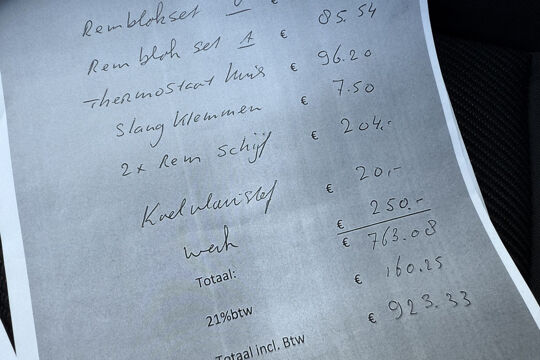 Remblokset V €
Remblok set A € 85.54
Thermostaat huis € 96.20
Slang klemmen € 7.50
2x Rem schijf € 204.-
Koelvloeistof € 20,-
werk € 250.-
Totaal: € 763.08
21%btw € 160.25
Totaal incl. Btw € 923.33